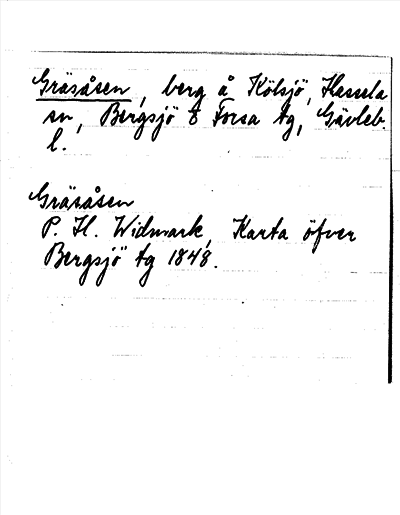 Gräsåsen, berg å Kölsjö, Hassela
sn, Bergsjö o Forsa tg, Gävleb.
l.
Gräsåsen
P. H. Widmark, Karta öfver
Bergsjö tg 1848.